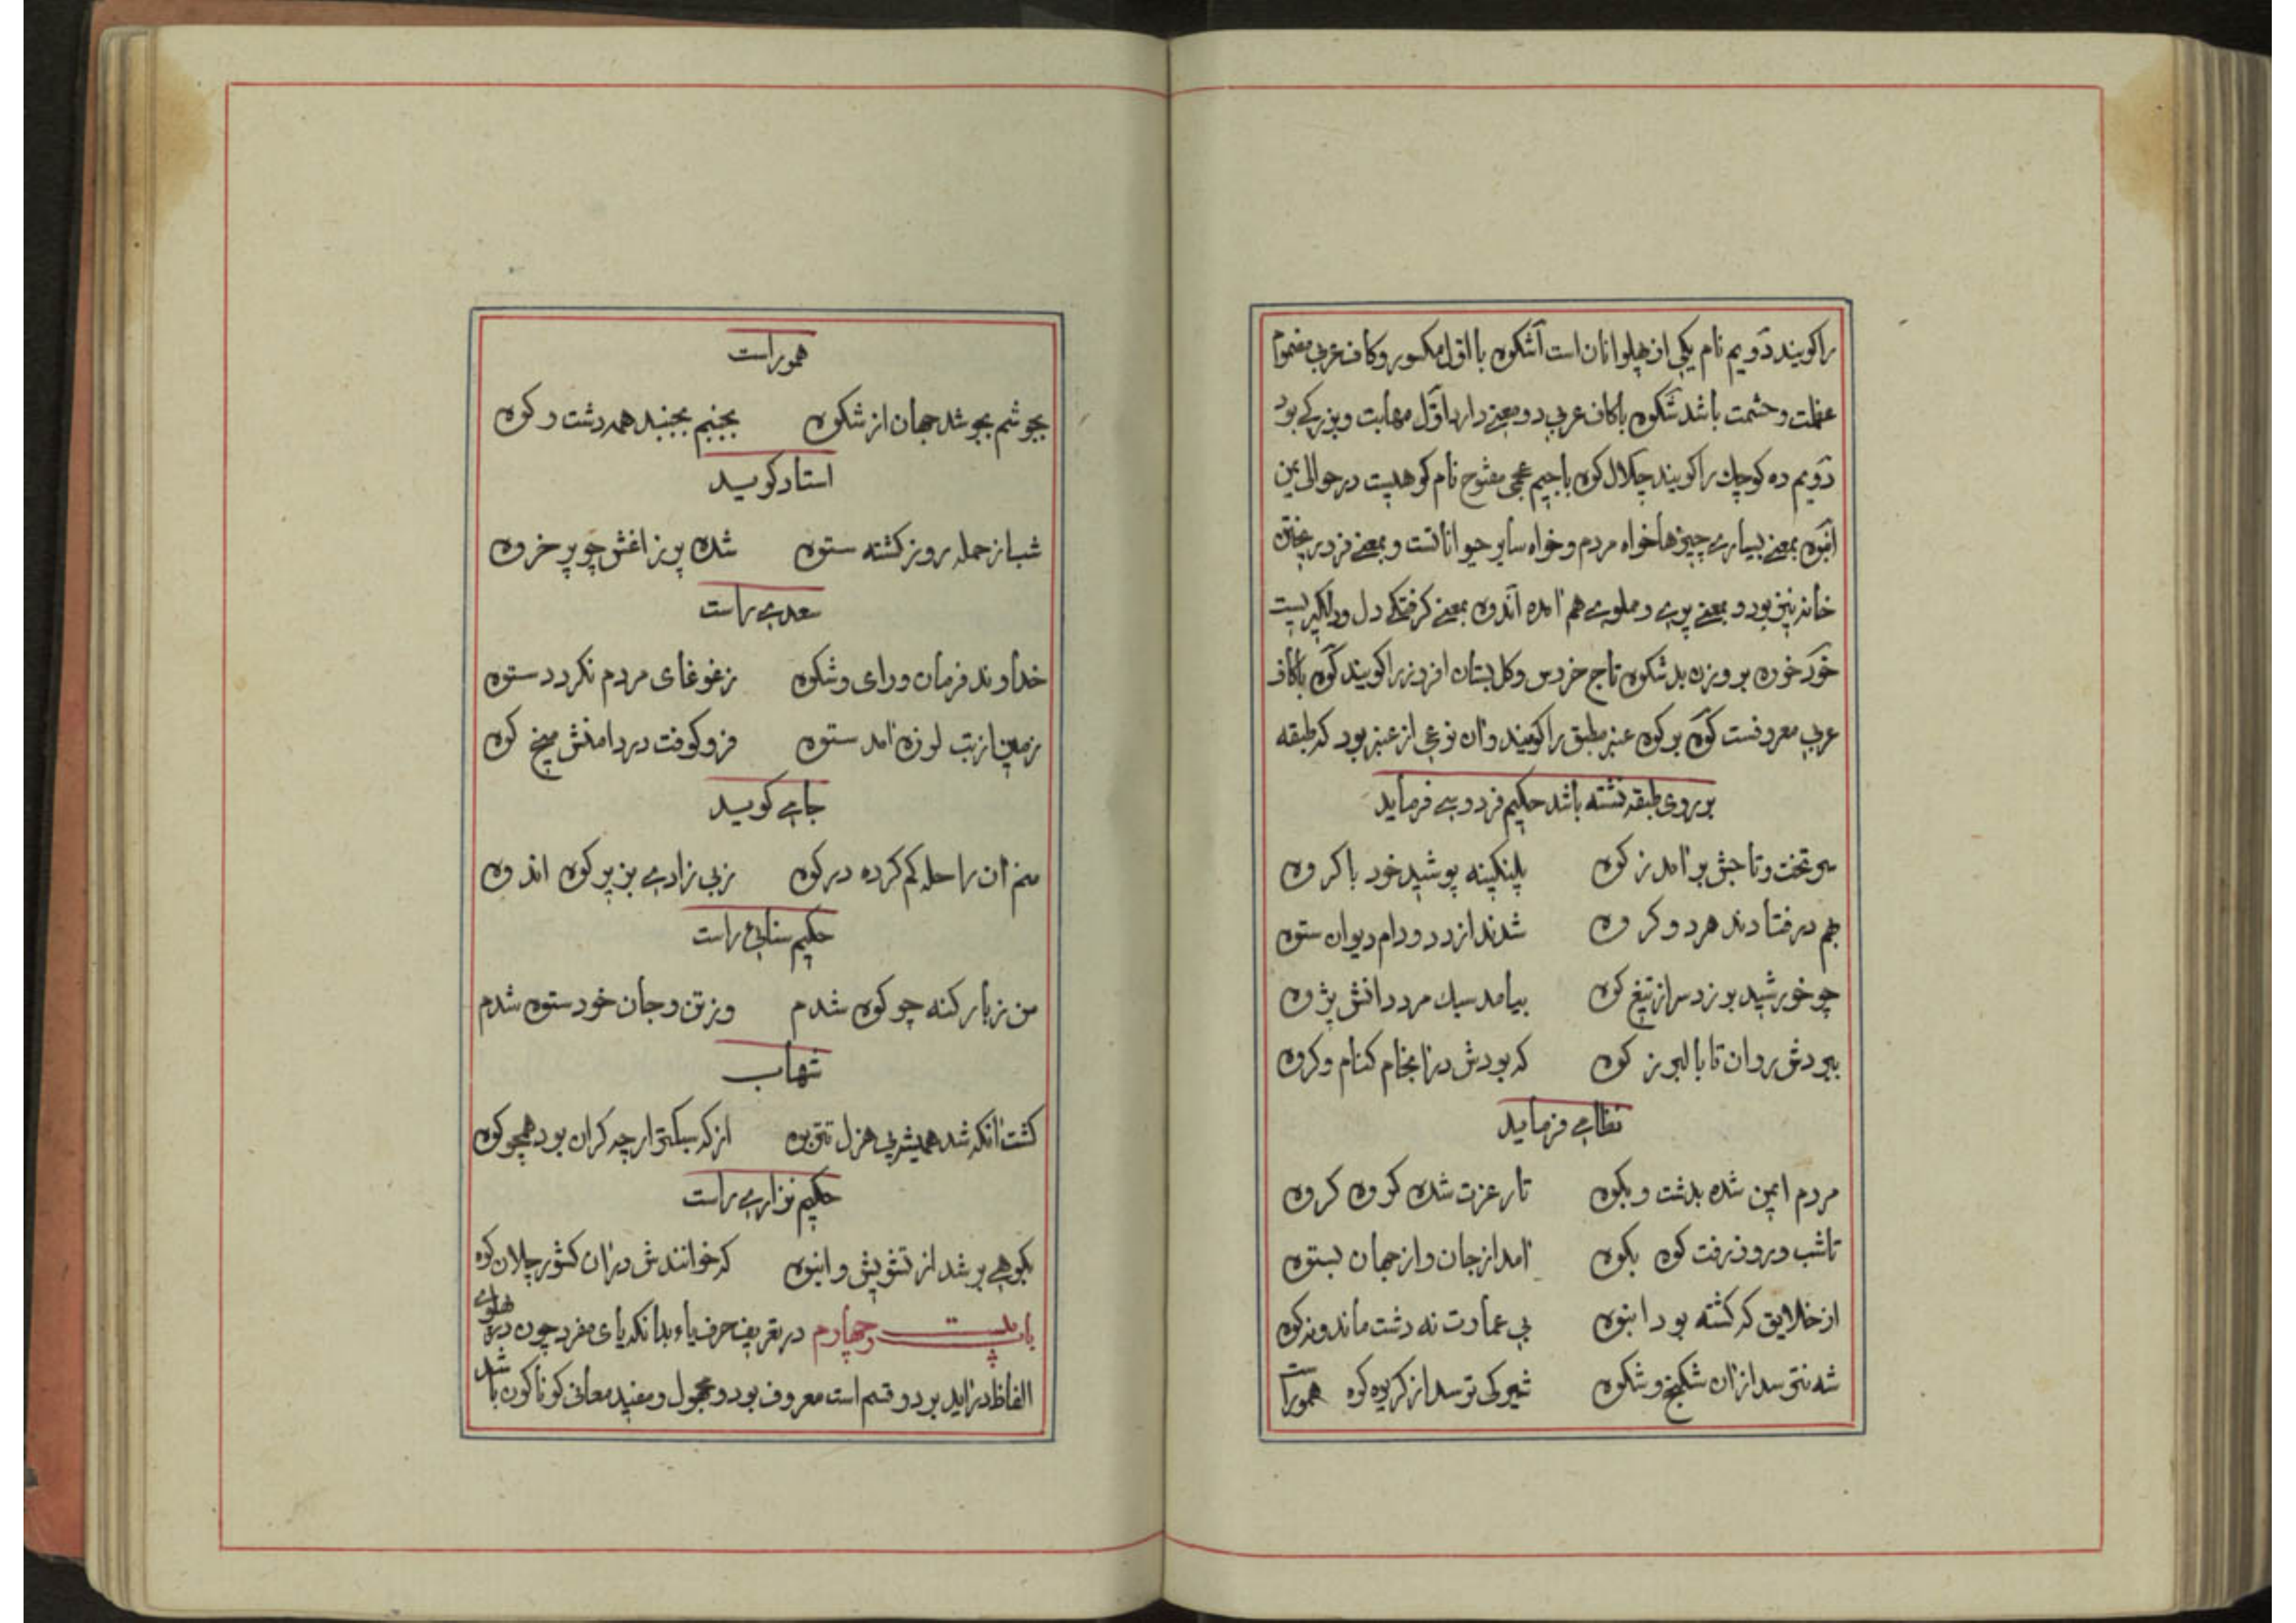 راکویند دویم نام یکی از پهلوانان است آشکوه با اول مکسور و کاف عربی مضموم
عظمت و حشمت باشد شکوه باکاف عربی دو معنی دارد اول مهابت و بزرکی بود
دویم ده کوچك راکویند چکلال کوه با جیم عجمی مفتوح نام کوهیست در حوالی
انبوه بمعنی بسیاری چیزها خواه مردم و خواه سایر حیواناتست و بمعنی فرو ریختن
خانه نیز بود و بمعنی پری و مملوی هم آمده اندوه بمعنی کرفتکی دل و دلکیریست
خود خوده بروزن بدشکوه تاج خروس و کل بستان افروز راکویند کوه باکاف
عربی معروفست کوه بر کوه عنبر مطبق راکویند و آن نوعی از عنبر بود که طبقه
بر روی طبقه نشسته باشد حکیم فردوسی فرماید
سر تخت و تاجش برآمد ز کوه پلنکینه پوشید خود با کروه
بهم درفتادند هر دو کروه شدند از دد و دام دیوان ستوه
چو خورشید بر زد سر از تیغ کوه بیامد سبك مرد دانش پژوه
ببردش روان تا بالبرز کوه که بودش در آنجا کنام و کروه
نظامی فرماید
مردم ایمن شده بدشت و بکوه تار عزت شده کروه کروه
تا شب و روز رفت کوه بکوه آمد از جان و از جهان بستوه
از خلایق که کشته بود انبوه بی عمارت نه دشت ماند و نه کوه
شه نترسد از آن شکنج و شکوه شیر کی ترسد از کریوه کوه همو راست
همو راست
بجوشم بجوشد جهان از شکوه بجنبم بجنبد همه دشت و کوه
استاد کوید
شب از حمله روز کشته ستوه شده پر زاغش چو پر خروه
سعدی راست
خداوند فرمان و رای و شکوه ز غوغای مردم نکردد ستوه
زمین از تب لرزه آمد ستوه فرو کوفت در دامنش میخ کوه
جامی کوید
منم آن راحله کم کرده در کوه ز بی زادی بزیر کوه اندوه
حکیم سنائی راست
من ز بار کنه چو کوه شدم وز تن و جان خود ستوه شدم
شهاب
کشت آنکه شد همیشه بی هزل از که سبکتر ار چه کران بود همچو کوه
حکیم نزاری راست
بکوهی بر شد از تشویش و انبوه که خوانندش در آن کشور چلان کوه
باب بیست و چهارم در تعریف حرف یاء بدانکه یای مفرد چون در پهلوی
الفاظ درآید بر دو قسم است معروف بود و مجهول و مفید معانی کوناکون باشد